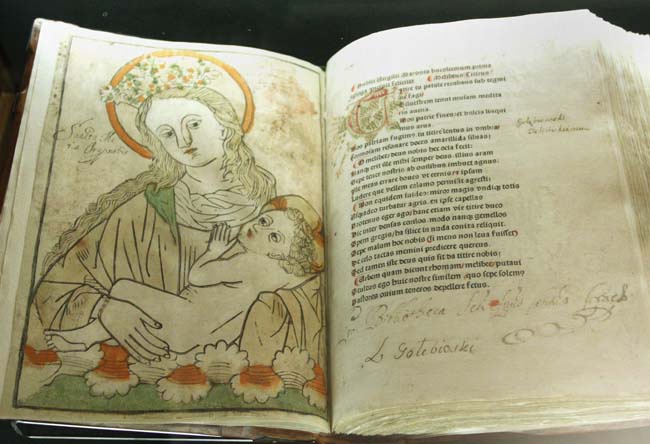 bucolicorum prima
egloga felicitas. Titirus.
Itire tu patule recubans sub tegmi
ne fagi
Siluestrem tenui musam medita
ris auena.
Nos patrie fines: et dulcia linqui
mus arua.
Nos patriam fugimus tu titire lentus in umbra
Formosam resonare doces amarillida siluas:
O melibee: deus nobis hec ocia fecit:
Nanq erit ille mihi semper deus: illius aram
Sepe tener nostris ab ouilibus imbuet agnus:
Ille meas errare boues ut cernis: et ipsum
Ludere que vellem calamo permisit agresti:
Non equidem inuideo: miror magis vndiq totis
Usq adeo turbatur agris. en ipse capellas
Protenus eger ago hanc etiam vix titire duco
Hic inter densas corilos. modo nanq gemellos
Spem gregis/ ha silice in nuda conixa reliquit.
Sepe malum hoc nobis (si mens non leua fuisset)
De celo tactas memini predicere quercus.
Sed tamen iste deus quis sit da titire nobis:
Urbem quam dicunt rhomam/ melibee/ putaui
Stultus ego huic nostre similem/ quo sepe solem9
Pastores ouium teneros depellere fetus.
Bibliotheca
L Golebiowski